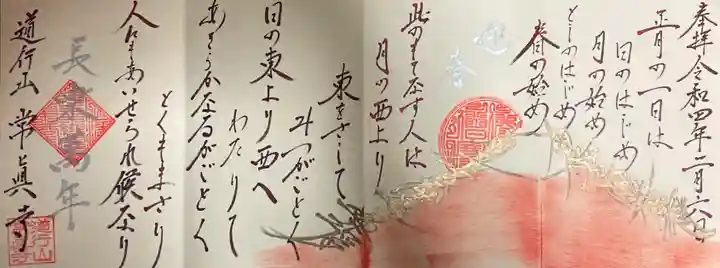 奉拝 令和四年二月六日
正月の一日は
日のはじめ
月の始め
としのはじめ
春の始め
迎春
此のもて
なす人は
月の西より
東をさして
みつがごとく
日の東より西へ
わたりて
あきらかなるがごとく
とくもまさり
人にもあいせられ候なり
長楽萬年
道行山 常眞寺
道行山